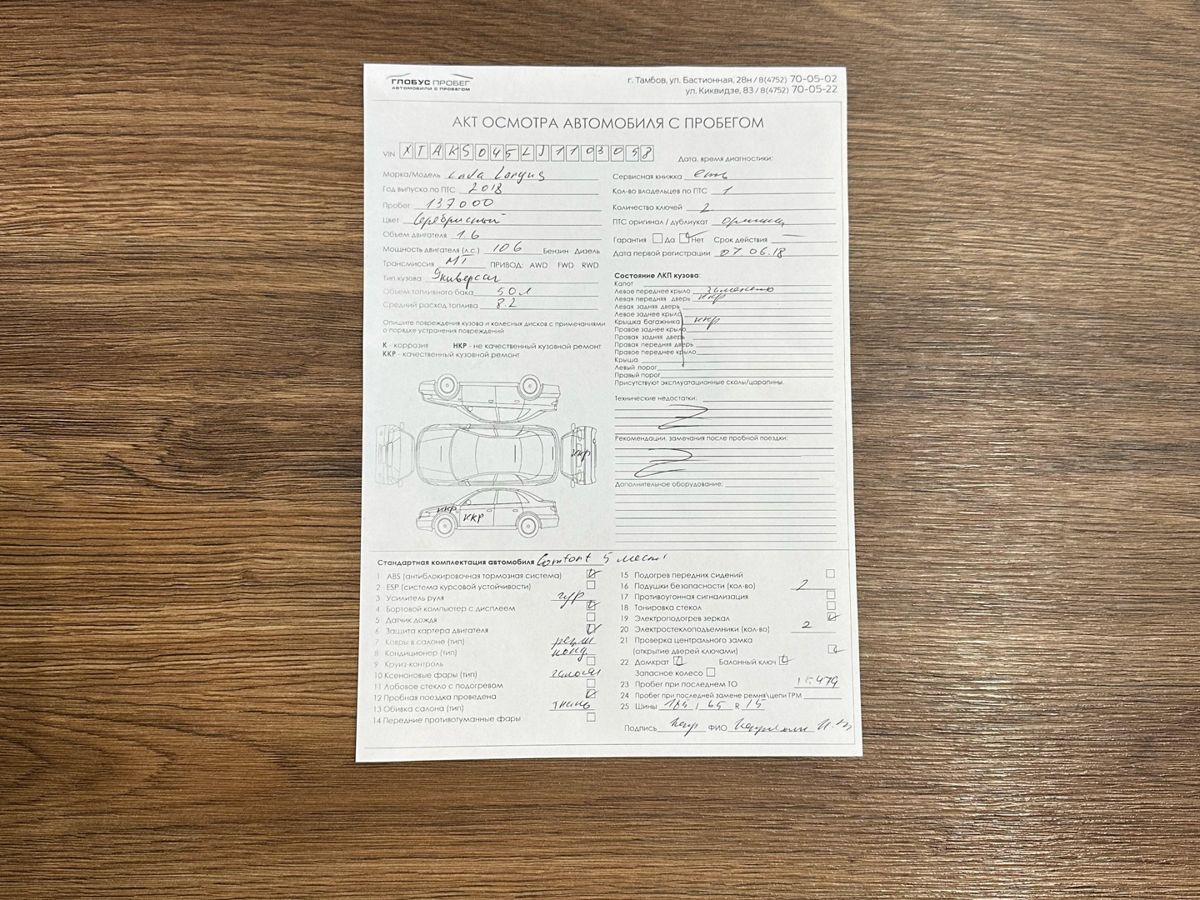 ГЛОБУС ПРОБЕГ
АВТОМОБИЛИ С ПРОБЕГОМ
г. Тамбов, ул. Бастионная, 28н / 8(4752) 70-05-02
ул. Киквидзе, 83 / 8(4752) 70-05-22
АКТ ОСМОТРА АВТОМОБИЛЯ С ПРОБЕГОМ
VIN XTAKS045LJ1103058
Дата, время диагностики:
Марка/Модель Lada Largus
Год выпуска по ПТС 2018
Пробег 137000
Цвет Серебристый
Объем двигателя 1.6
Мощность двигателя (л.с.) 106 Бензин Дизель
Трансмиссия МТ ПРИВОД: AWD FWD RWD
Тип кузова Универсал
Объем топливного бака 50 л
Средний расход топлива 8.2
Опишите повреждения кузова и колесных дисков с примечаниями
о порядке устранения повреждений
К - коррозия НКР - не качественный кузовной ремонт
ККР - качественный кузовной ремонт
ккр
ккр
ккр
Сервисная книжка есть
Кол-во владельцев по ПТС 1
Количество ключей 2
ПТС оригинал / дубликат оригинал
Гарантия Да Нет Срок действия —
Дата первой регистрации 07.06.18
Состояние ЛКП кузова:
Капот
Левое переднее крыло Заменено
Левая передняя дверь ккр
Левая задняя дверь
Левое заднее крыло
Крышка багажника ккр
Правое заднее крыло
Правая задняя дверь
Правая передняя дверь
Правое переднее крыло
Крыша
Левый порог
Правый порог
Присутствуют эксплуатационные сколы/царапины.
Технические недостатки:
Рекомендации, замечания после пробной поездки:
Дополнительное оборудование:
Стандартная комплектация автомобиля Comfort 5 мест
1 ABS (антиблокировочная тормозная система)
2 ESP (система курсовой устойчивости)
3 Усилитель руля гур
4 Бортовой компьютер с дисплеем
5 Датчик дождя
6 Защита картера двигателя
7 Ковры в салоне (тип)
8 Кондиционер (тип) конд
9 Круиз-контроль
10 Ксеноновые фары (тип)
11 Лобовое стекло с подогревом
12 Пробная поездка проведена
13 Обивка салона (тип) ткань
14 Передние противотуманные фары
15 Подогрев передник сидений
16 Подушки безопасности (кол-во) 2
17 Противоугонная сигнализация
18 Тонировка стекол
19 Электроподогрев зеркал
20 Электростеклоподъемники (кол-во) 2
21 Проверка центрального замка
(открытие дверей ключами)
22 Домкрат Балонный ключ
Запасное колесо
23 Пробег при последнем ТО
24 Пробег при последней замене ремня/цепи ГРМ
25 Шины 185 / 65 R 15
Подпись ФИО